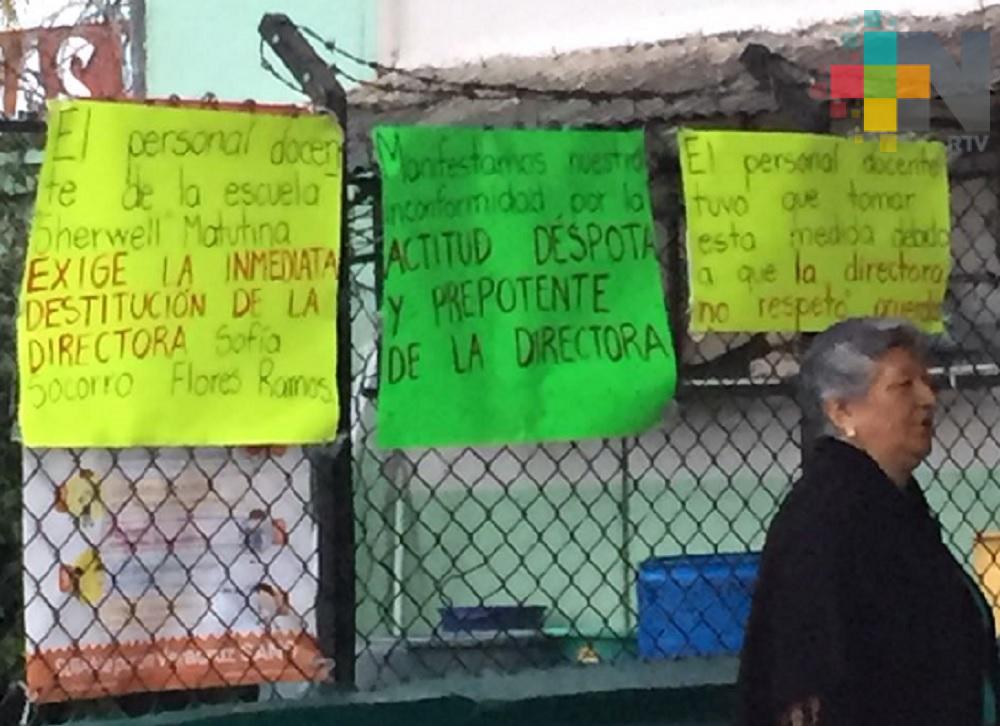 El personal docen
te de la escuela
Sherwell Matutina
EXIGE LA INMEDIATA
DESTITUCIÓN DE LA
DIRECTORA Sofía
Socorro Flores Ramos.
Manifestamos nuestra
inconformidad por la
ACTITUD DÉSPOTA
Y PREPOTENTE
DE LA DIRECTORA
El personal docente
tuvo que tomar
esta medida debido
a que la directora
no respetó
N
RTV